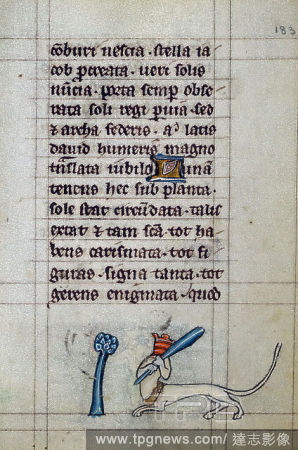 183
cōburi nescia · stella ia
cob p̄creata · veri solis
nūcia · porta semp̄ obse
rata soli regi puia · sed
& archa federis · a dacis
david humeris magno
tnslata iubilo Lunā
tenens hec sub planta ·
sole stat circūdata · talis
extat & tam scā · tot ha
bens carismata · tot fi
guras · signa tanta · tot
gerens enigmata · quod
www.tpgnews.com/ 達志影像